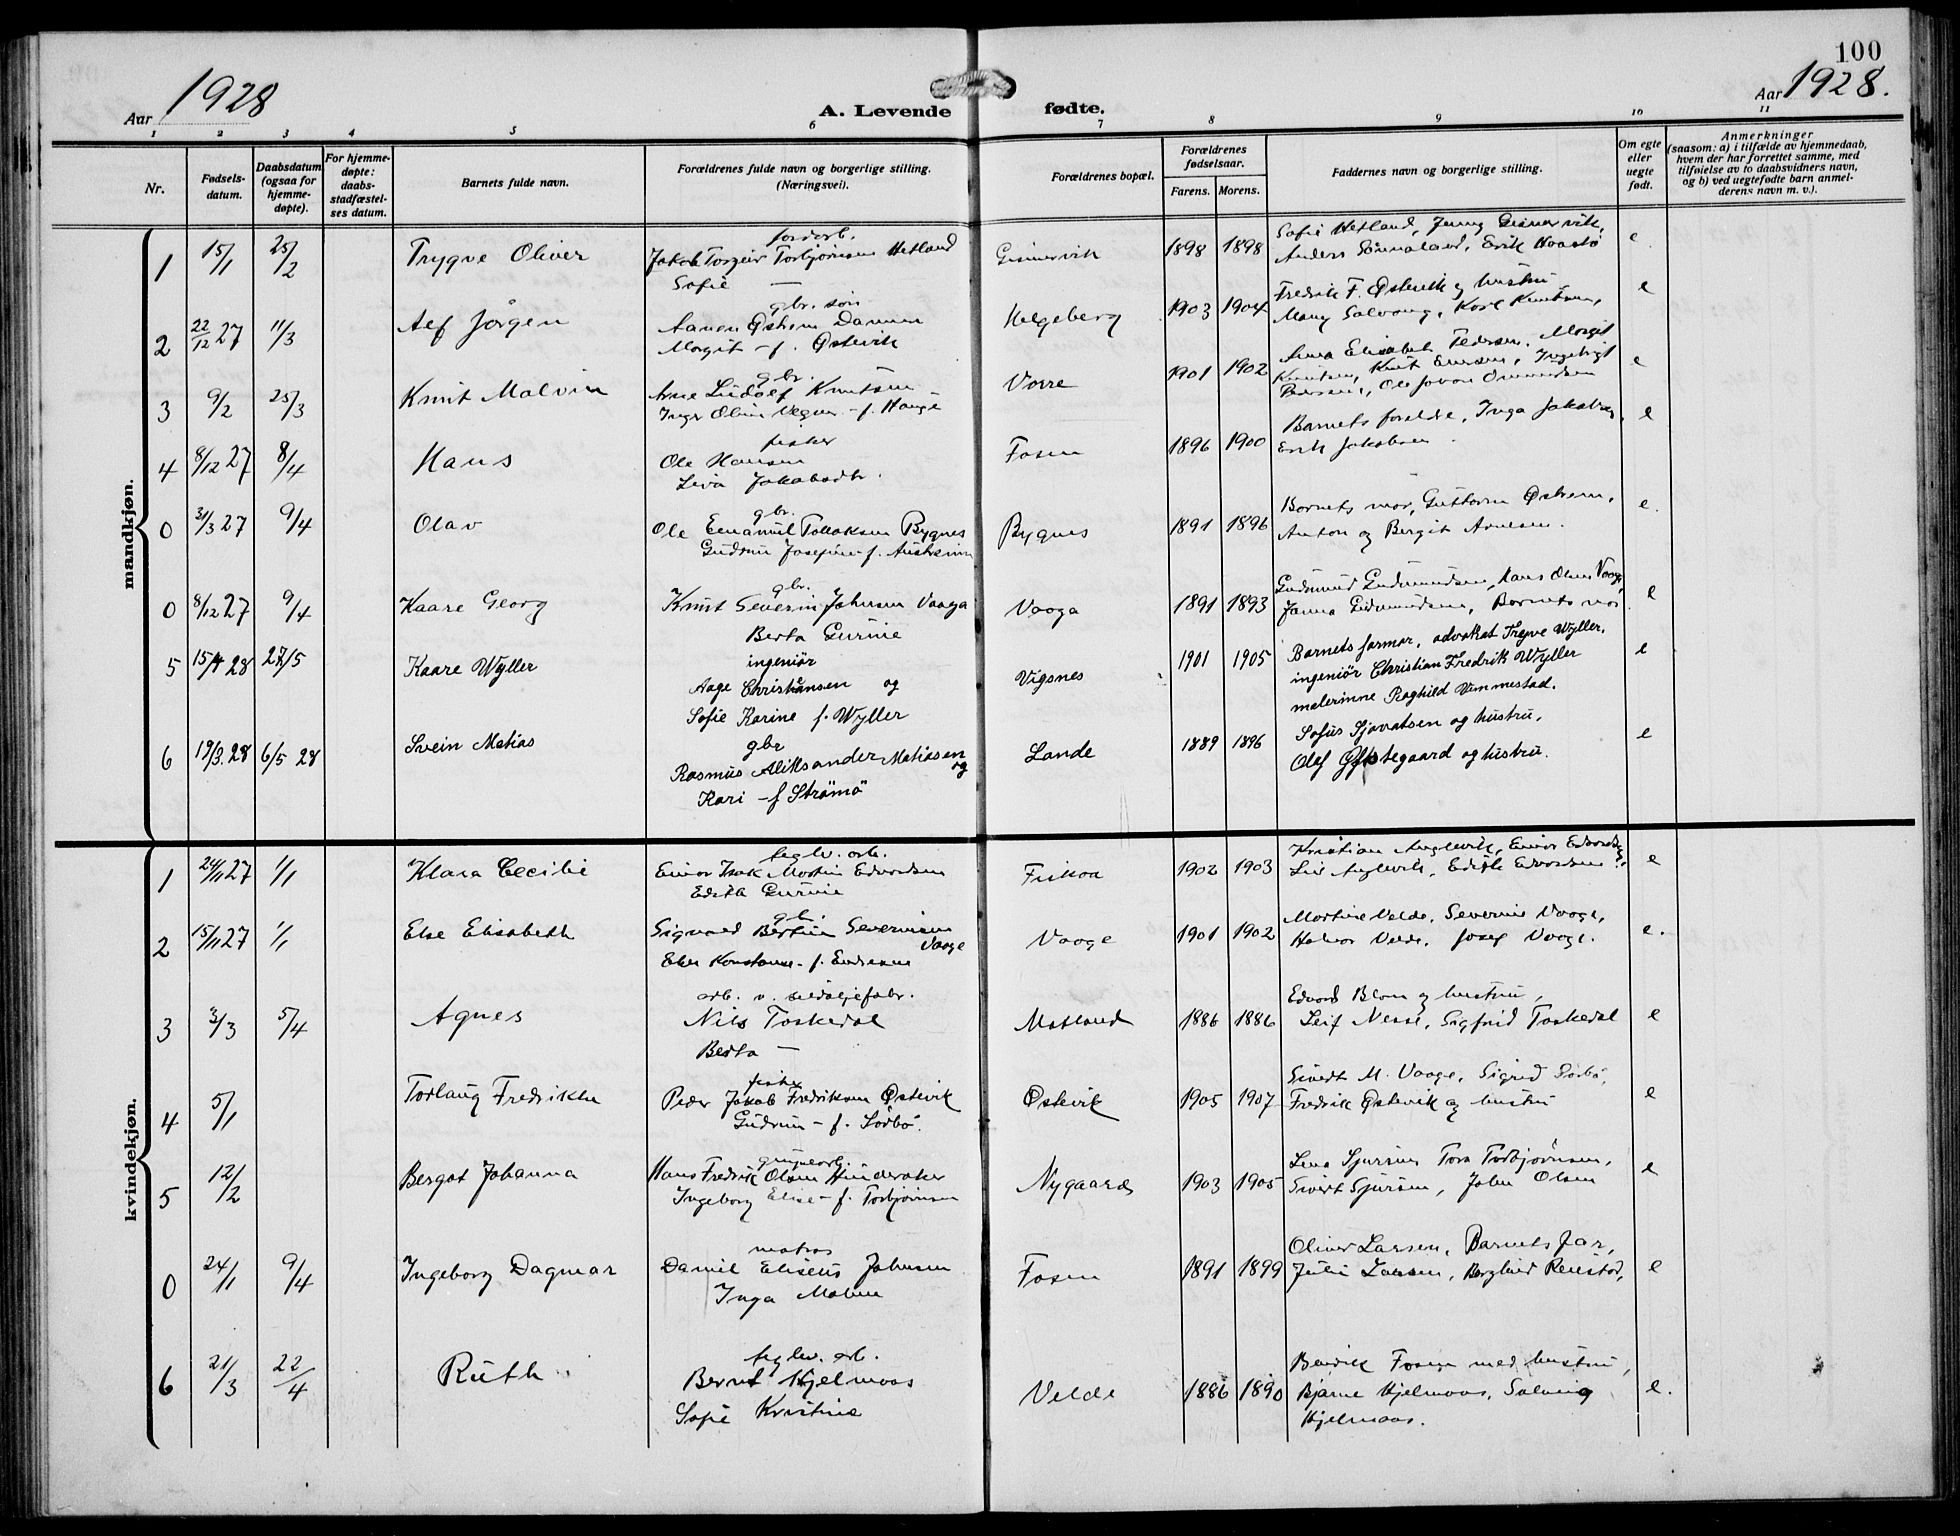 100
Aar 1928
A. Levende fødte.
Aar 1928.
1 2 3 4 5 6 7 8 9 10 11
Nr.
Fødsels-
datum.
Daabsdatum
(ogsaa for
hjemme-
døpte).
For hjemme-
døpte:
daabs-
stadfæstel-
ses datum.
Barnets fulde navn.
Forældrenes fulde navn og borgerlige stilling.
(Næringsvei).
Forældrenes bopæl.
Forældrenes
fødselsaar.
Farens. Morens.
Faddernes navn og borgerlige stilling.
Om egte
eller
uegte
født.
Anmerkninger
(saasom: a) i tilfælde av hjemmedaab,
hvem der har forrettet samme, med
tilføielse av to daabsvidners navn,
og b) ved uegtefødte barn anmel-
derens navn m. v.).
mandkjøn.
1 15/1 25/2 Trygve Oliver
jordarb.
Jakob Torgeir Torbjörnsen Hetland
Sofie —
Gismervik 1898 1898
Sofie Hetland, Jenny Gismervik,
Anders Sönnaland, Erik Haastö
e
2 22/12 27 11/3 Alf Jörgen
gbr. sön
Østrem Dannen
Margit - f. Østevik
Helgeberg 1903 1904
Fredrik F. Østevik og hustru
Many Salvong, Karl Knutsen,
e
3 9/2 25/3 Knut Malvin
gbr.
Arne Ludolf Knutsen
Inger Oline - f. Hauge
Vorre 1901 1902
Anna Elisabet Pedersen, Margit
Knutsen, Knut Ingebrigt
Pedersen, Ole Johan Ommundsen
e
4 8/12 27 8/4 Hans
fisker
Ole Hansen
Liva Jakobsdtr.
Fosen 1896 1900
Barnets foreldre, Inga Jakobsen,
Erik Jakobsen.
e
0 31/3 27 9/4 Olav
gbr.
Ole Emanuil Tollaksen Bygnes
Gudrun Josefine - f. Austreim
Bygnes 1891 1896
Barnets mor, Guttorm Østrem,
Anton og Bergit Arnesen.
e.
0 8/12 27 9/4 Kaare Georg
gbr.
Knut Severin Johnsen Vaaga
Berta Gurine
Vaaga 1891 1893
Gudmund Gudmundsen, Hans Olsen Vaage,
Janna Gudmundsen, Barnets mor.
e
5 15/4 28 27/5 Kaare Wyller
ingeniør
Aage Christiansen og
Sofie Karine f. Wyller
Vigsnes 1901 1905
Barnets farmor, advokat Trygve Wyller,
ingeniör Christian Fredrik Wyller
malerinne Raghild Vemmestad.
e
6 19/3 28 6/5 28 Svein Matias
gbr
Rasmus Aliksander Matiasen og
Kari - f Strömö
Lande 1889 1896
Sofus Sjovatsen og hustru,
Olaf Øfstegaard og hustru.
e
kvindekjøn.
1 24/11 27 1/1 Klara Cecilie
teglv. arb.
Einar Isak Martin Edvardsen
Edith Gurine
Fiskaa 1902 1903
Kristian Anglevik, Einar Edvardsen,
Liv Anglevik, Edith Edvardsen
e
2 15/11 27 1/1 Else Elisabeth
gbr.
Sigvald Bertin Severinsen
Vaage
Ellen Konstanse - f. Endresen
Vaage 1901 1902
Martine Velde, Severine Vaage,
Halvor Velde, Josef Vaage.
e.
3 3/3 5/4 Agnes
arb. v. sildoljefabr.
Nils Toskedal
Berta —
Matland 1886 1886
Edvard Blom og hustru,
Leif Nesse, Sigfrid Toskedal
e
4 5/1 Torlaug Fredrikke
fisker
Peder Jakob Fredriksen Østevik
Gudrun - f. Sörbö.
Østevik 1905 1907
Sivert M. Vaage, Sigrid Sörbö,
Fredrik Østevik og hustru
e
5 12/2 Bergot Johanna
grubearb.
Hans Fredrik Olsen Hinderaker
Ingeborg Elise - f. Torbjörnsen
Nygaard 1903 1905
Lena Sjursen, Tora Torbjörnsen,
Sivert Sjursen, John Olsen
e
0 24/1 9/4 Ingeborg Dagmar
matros
Daniel Eliseus Johnsen
Inga Maline
Fosen 1891 1899
Oliver Larsen, Barnets far,
Julie Larsen, Borghild Reistad,
e
6 21/3 22/4 Ruth
teglv. arb.
Bernt Hjelmaas
Sofie Kristine
Velde 1886 1890
Bendik Fosen med hustru,
Bjarne Hjelmaas, Solveig
Hjelmaas.
e.